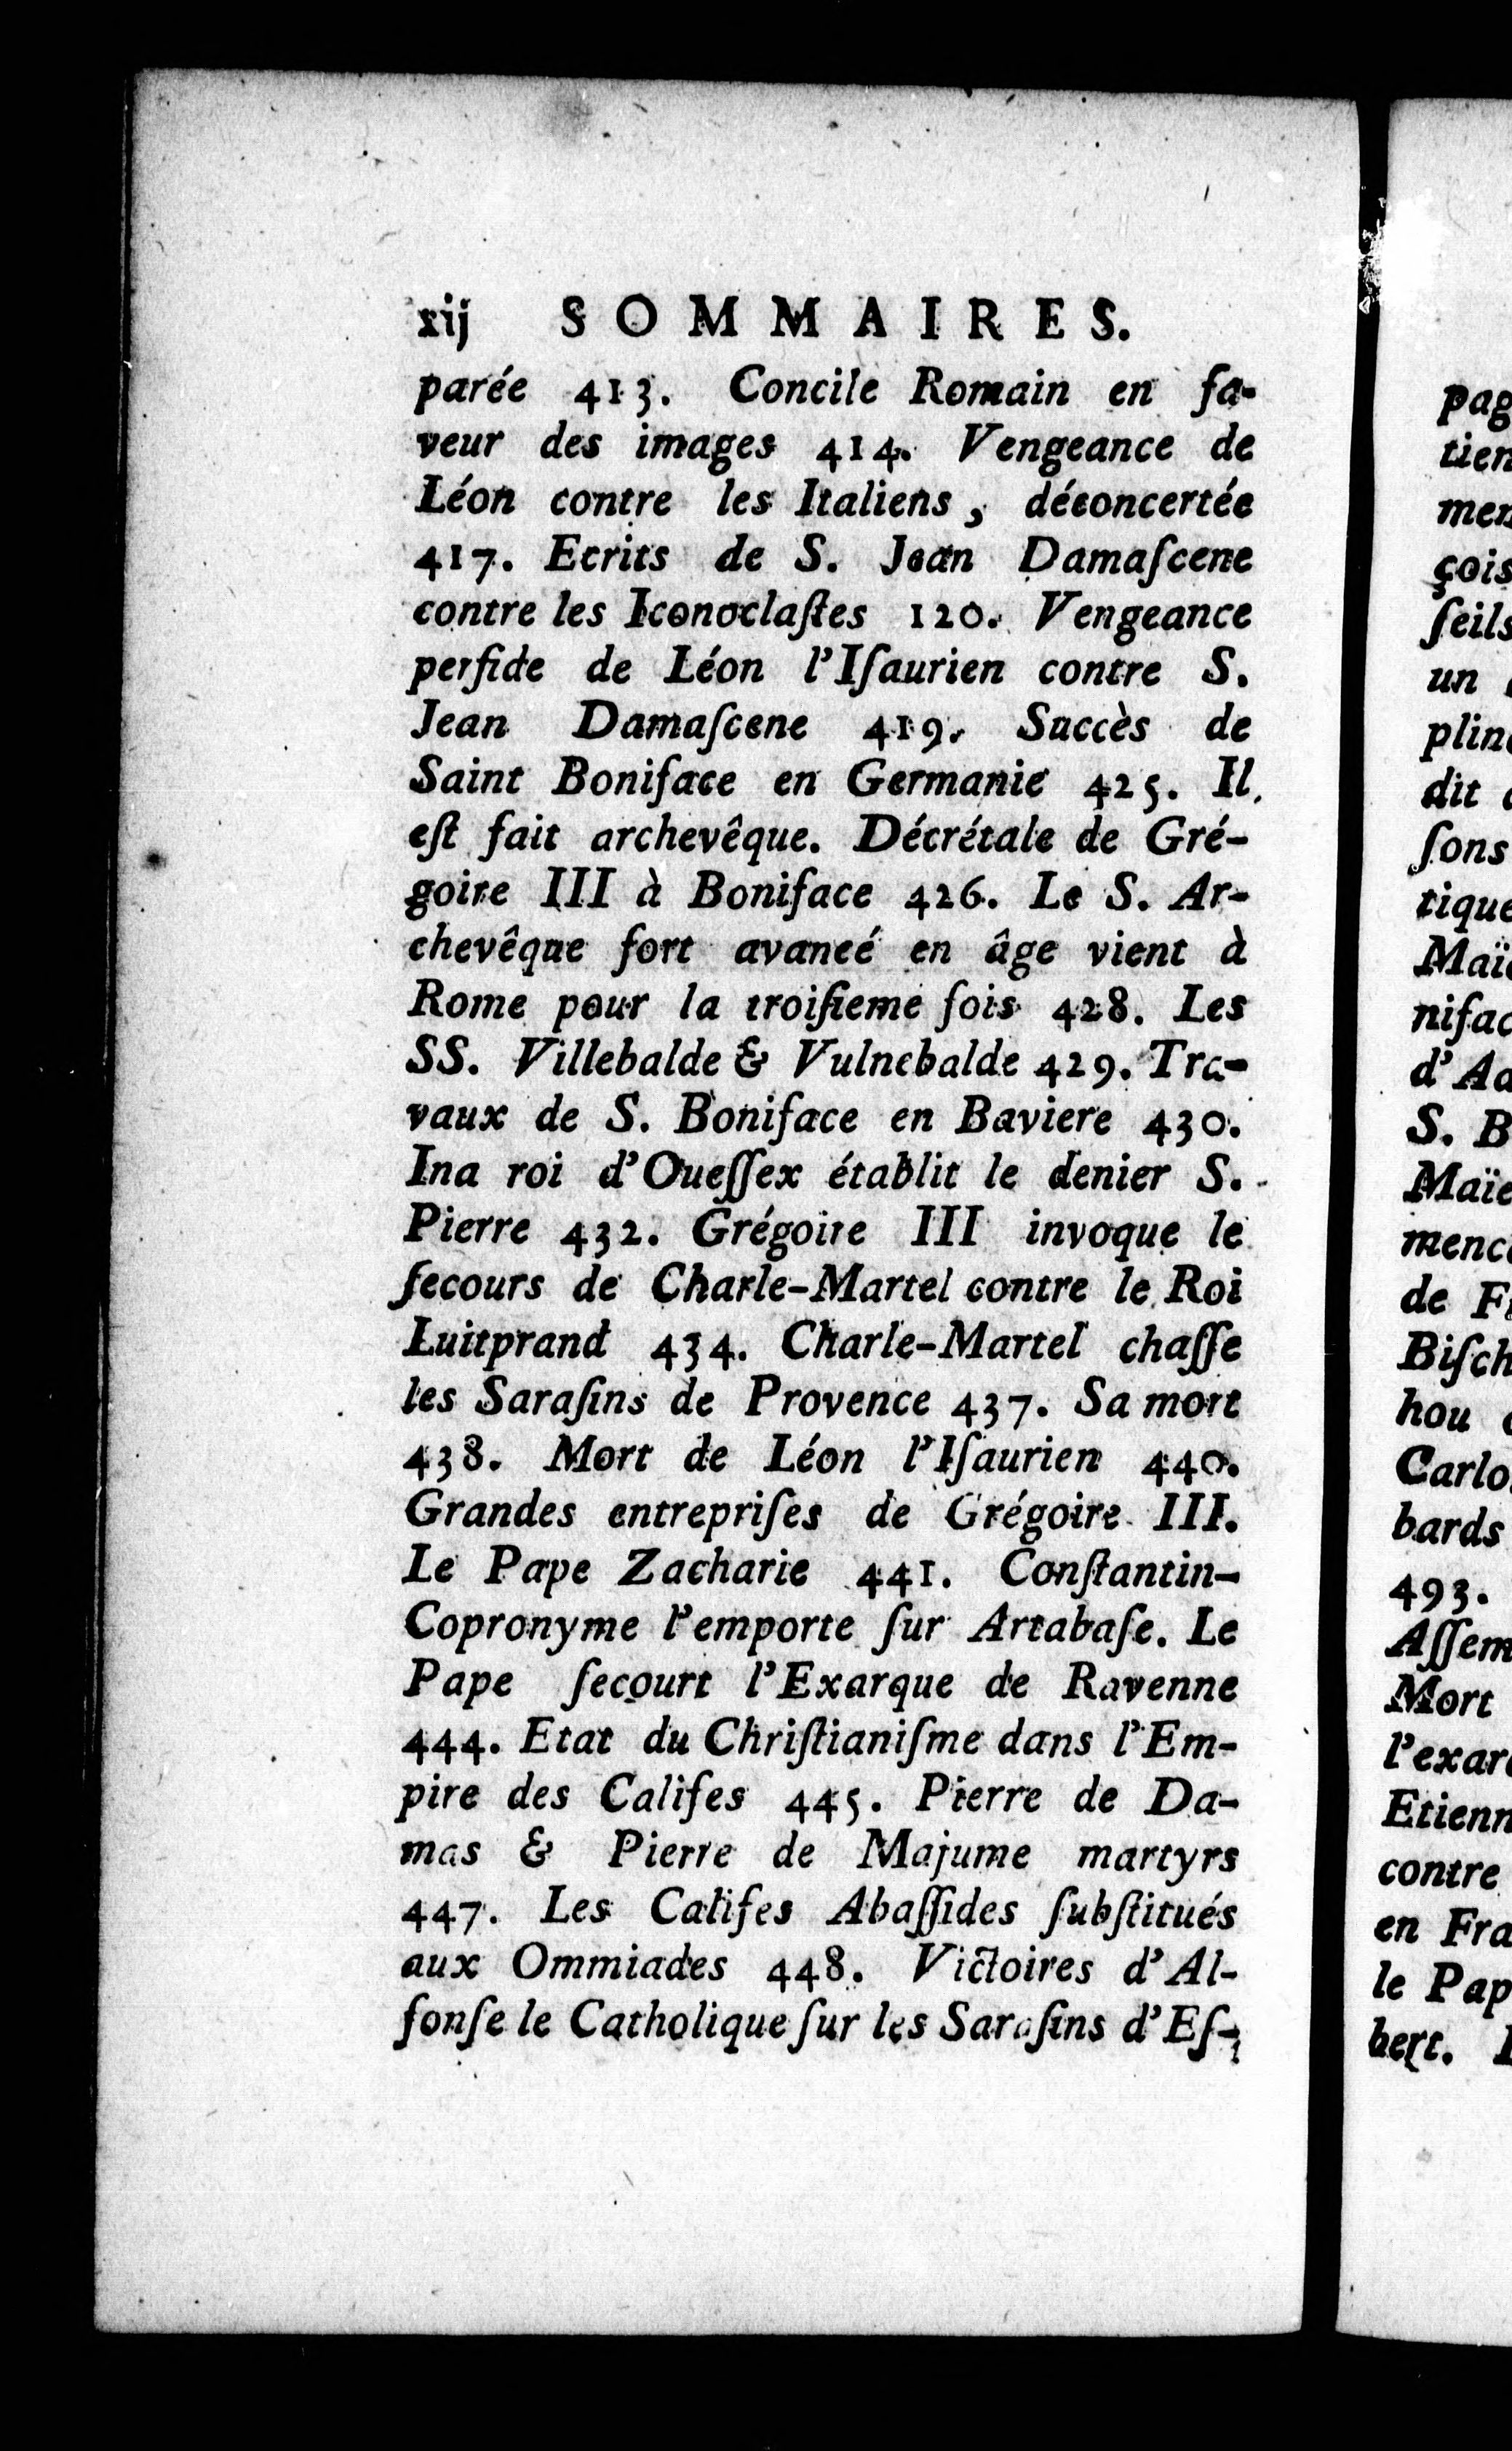 xij SOMMAIRES.
parée 413. Concile Romain en fa-
veur des images 414. Vengeance de
Léon contre les Italiens, déconcertée
417. Ecrits de S. Jean Damaſcene
contre les Iconoclaſtes 120. Vengeance
perfide de Léon l'Iſaurien contre S.
Jean Damaſcene 419. Succès de
Saint Boniface en Germanie 425. Il
eſt fait archevêque. Décrétale de Gré-
goire III à Boniface 426. Le S. Ar-
chevêque fort avancé en âge vient à
Rome pour la troiſieme fois 428. Les
SS. Villebalde & Vulnebalde 429. Tra-
vaux de S. Boniface en Baviere 430.
Ina roi d'Oueſſex établit le denier S.
Pierre 432. Grégoire III invoque le
ſecours de Charle-Martel contre le Roi
Luitprand 434. Charle-Martel chaſſe
les Saraſins de Provence 437. Sa mort
438. Mort de Léon l'Iſaurien 440.
Grandes entrepriſes de Grégoire III.
Le Pape Zacharie 441. Conſtantin-
Copronyme l'emporte ſur Artabaſe. Le
Pape ſecourt l'Exarque de Ravenne
444. Etat du Chriſtianiſme dans l'Em-
pire des Califes 445. Pierre de Da-
mas & Pierre de Majume martyrs
447. Les Califes Abaſſides ſubſtitués
aux Ommiades 448. Victoires d'Al-
fonſe le Catholique ſur les Saraſins d'Eſ-
pag
tien
men
çois
ſeils
un
plin
dit
ſons
tique
Maï
nifac
d'Ad
S. B
Maïe
menc
de F
Biſch
hou
Carlo
bards
493.
Aſſem
Mort
l'exar
Etienn
contre
en Fra
le Pap
bert.